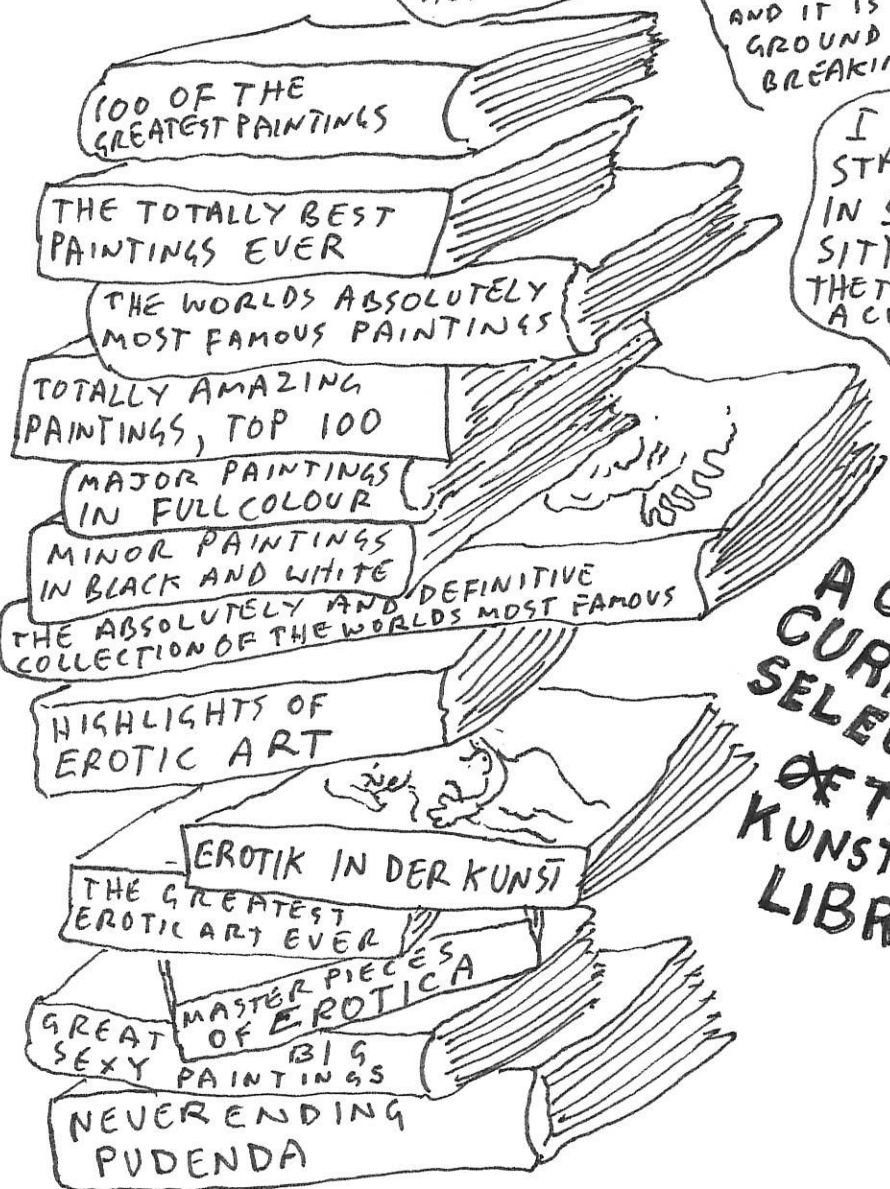 AND IT IS
GROUND
100 OF THE
GREATEST PAINTINGS
I
IN
THE TOTALLY BEST
PAINTINGS EVER
THE WORLDS ABSOLUTELY
MOST FAMOUS PAINTINGS
TOTALLY AMAZING
PAINTINGS, TOP 100
MAJOR PAINTINGS
IN FULL COLOUR
MINOR PAINTINGS
IN BLACK AND WHITE
THE ABSOLUTELY AND DEFINITIVE
COLLECTION OF THE WORLDS MOST FAMOUS
HIGHLIGHTS OF
EROTIC ART
EROTIK IN DER KUNST
THE GREATEST
EROTIC ART EVER
MASTERPIECES
OF EROTICA
GREAT BIG
SEXY PAINTINGS
NEVERENDING
PUDENDA
A
OF